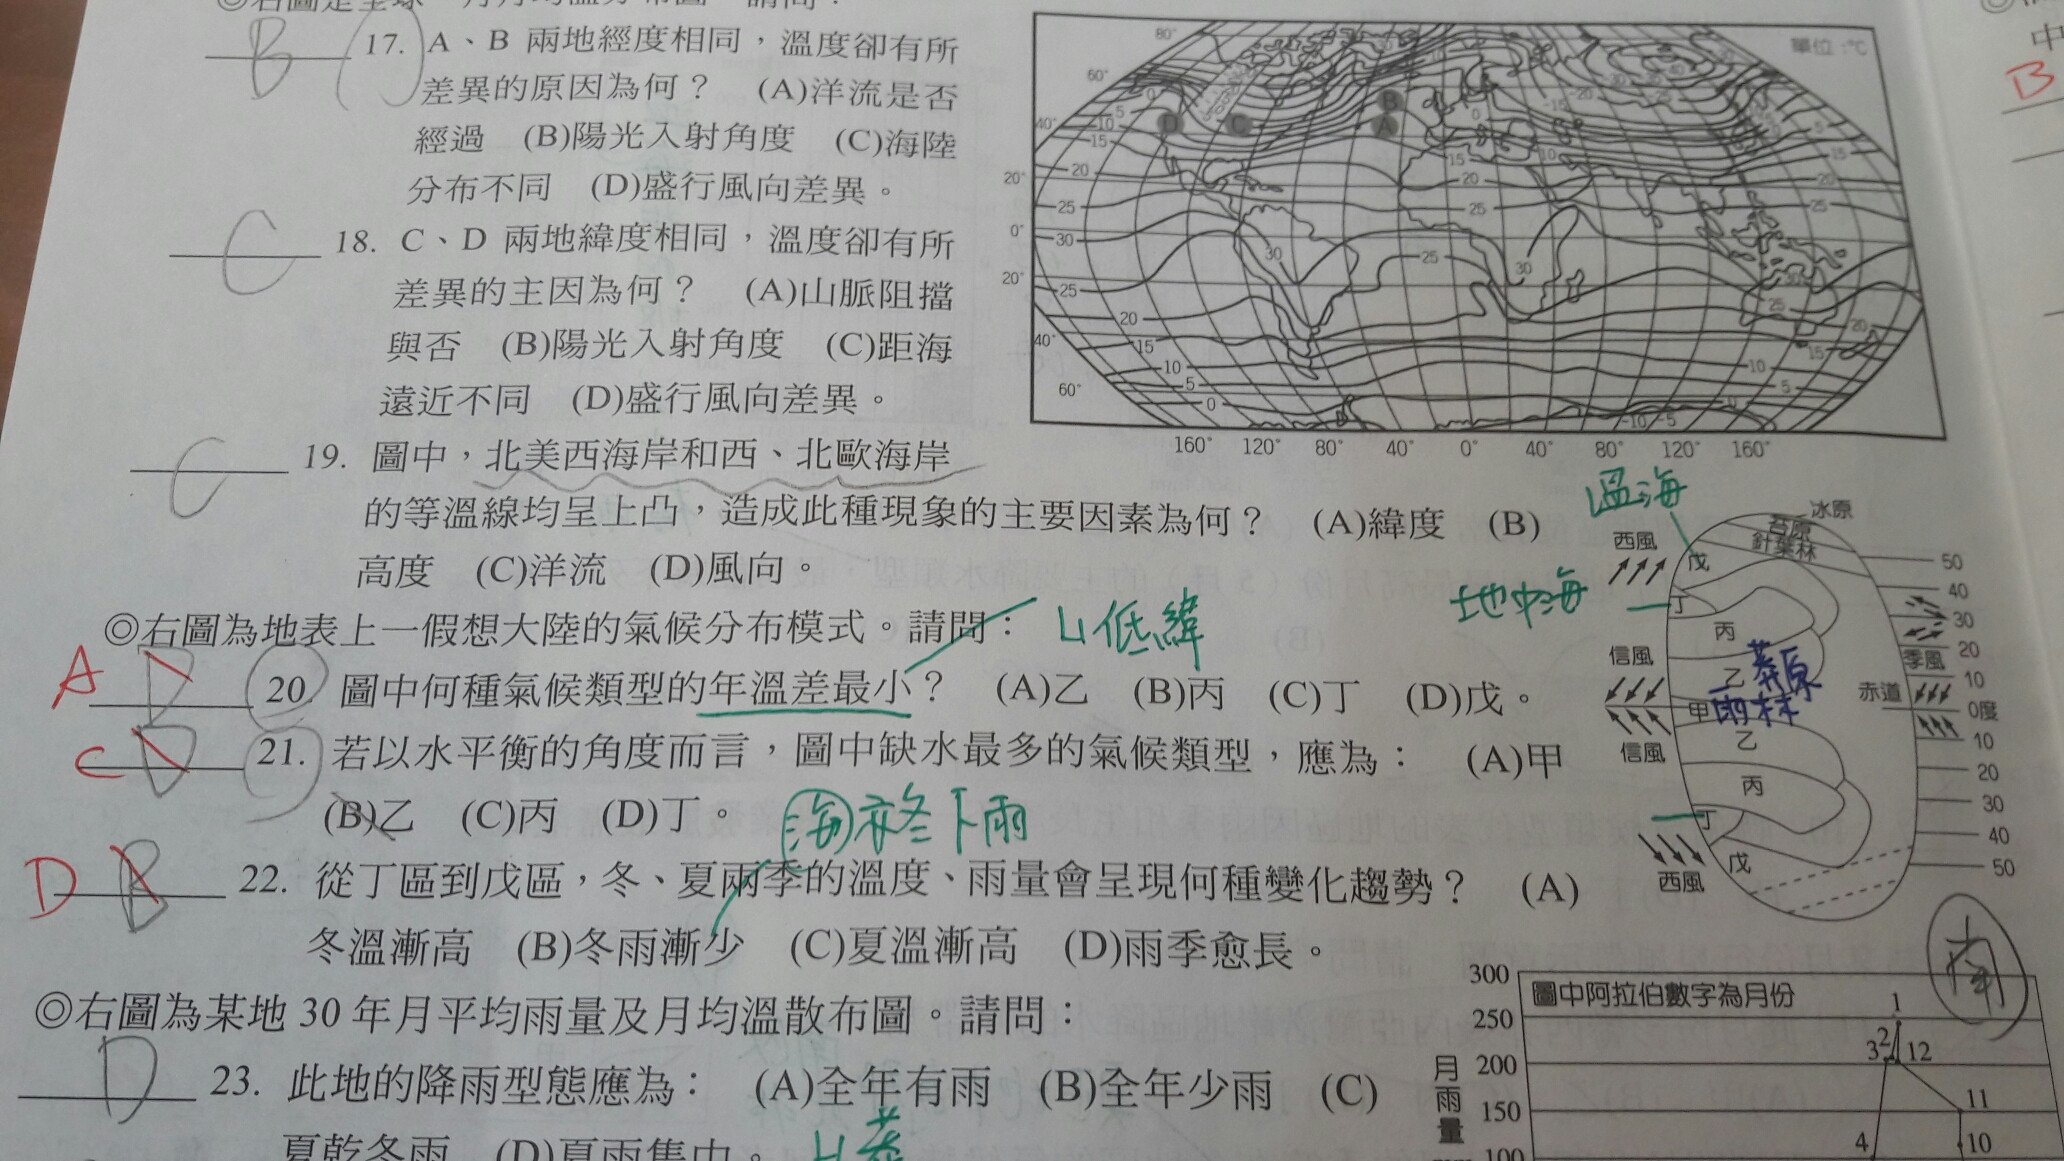 B
17. A、B 兩地經度相同，溫度卻有所
差異的原因為何？ (A)洋流是否
經過 (B)陽光入射角度 (C)海陸
分布不同 (D)盛行風向差異。
C
18. C、D 兩地緯度相同，溫度卻有所
差異的主因為何？ (A)山脈阻擋
與否 (B)陽光入射角度 (C)距海
遠近不同 (D)盛行風向差異。
C
19. 圖中，北美西海岸和西、北歐海岸
的等溫線均呈上凸，造成此種現象的主要因素為何？ (A)緯度 (B)
高度 (C)洋流 (D)風向。
◎右圖為地表上一假想大陸的氣候分布模式。請問：
低緯
A
D
20. 圖中何種氣候類型的年溫差最小？ (A)乙 (B)丙 (C)丁 (D)戊。
C
D
21. 若以水平衡的角度而言，圖中缺水最多的氣候類型，應為： (A)甲
(B)乙 (C)丙 (D)丁。
亦冬下雨
D
B
22. 從丁區到戊區，冬、夏兩季的溫度、雨量會呈現何種變化趨勢？ (A)
冬溫漸高 (B)冬雨漸少 (C)夏溫漸高 (D)雨季愈長。
◎右圖為某地 30 年月平均雨量及月均溫散布圖。請問：
D
23. 此地的降雨型態應為： (A)全年有雨 (B)全年少雨 (C)
夏乾冬雨 (D)夏雨集中。
單位：℃
80°
60°
40°
20°
0°
20°
40°
60°
A
B
C
D
160° 120° 80° 40° 0° 40° 80° 120° 160°
溫海
地中海
冰原
苔原
針葉林
西風
戊
丁
丙
信風
乙
莽原
甲
雨林
信風
乙
丙
丁
戊
西風
50
40
30
20
季風
10
赤道
0度
10
20
30
40
50
南
圖中阿拉伯數字為月份
300
250
200
150
100
月
雨
量
1
2
3
12
11
10
4
B